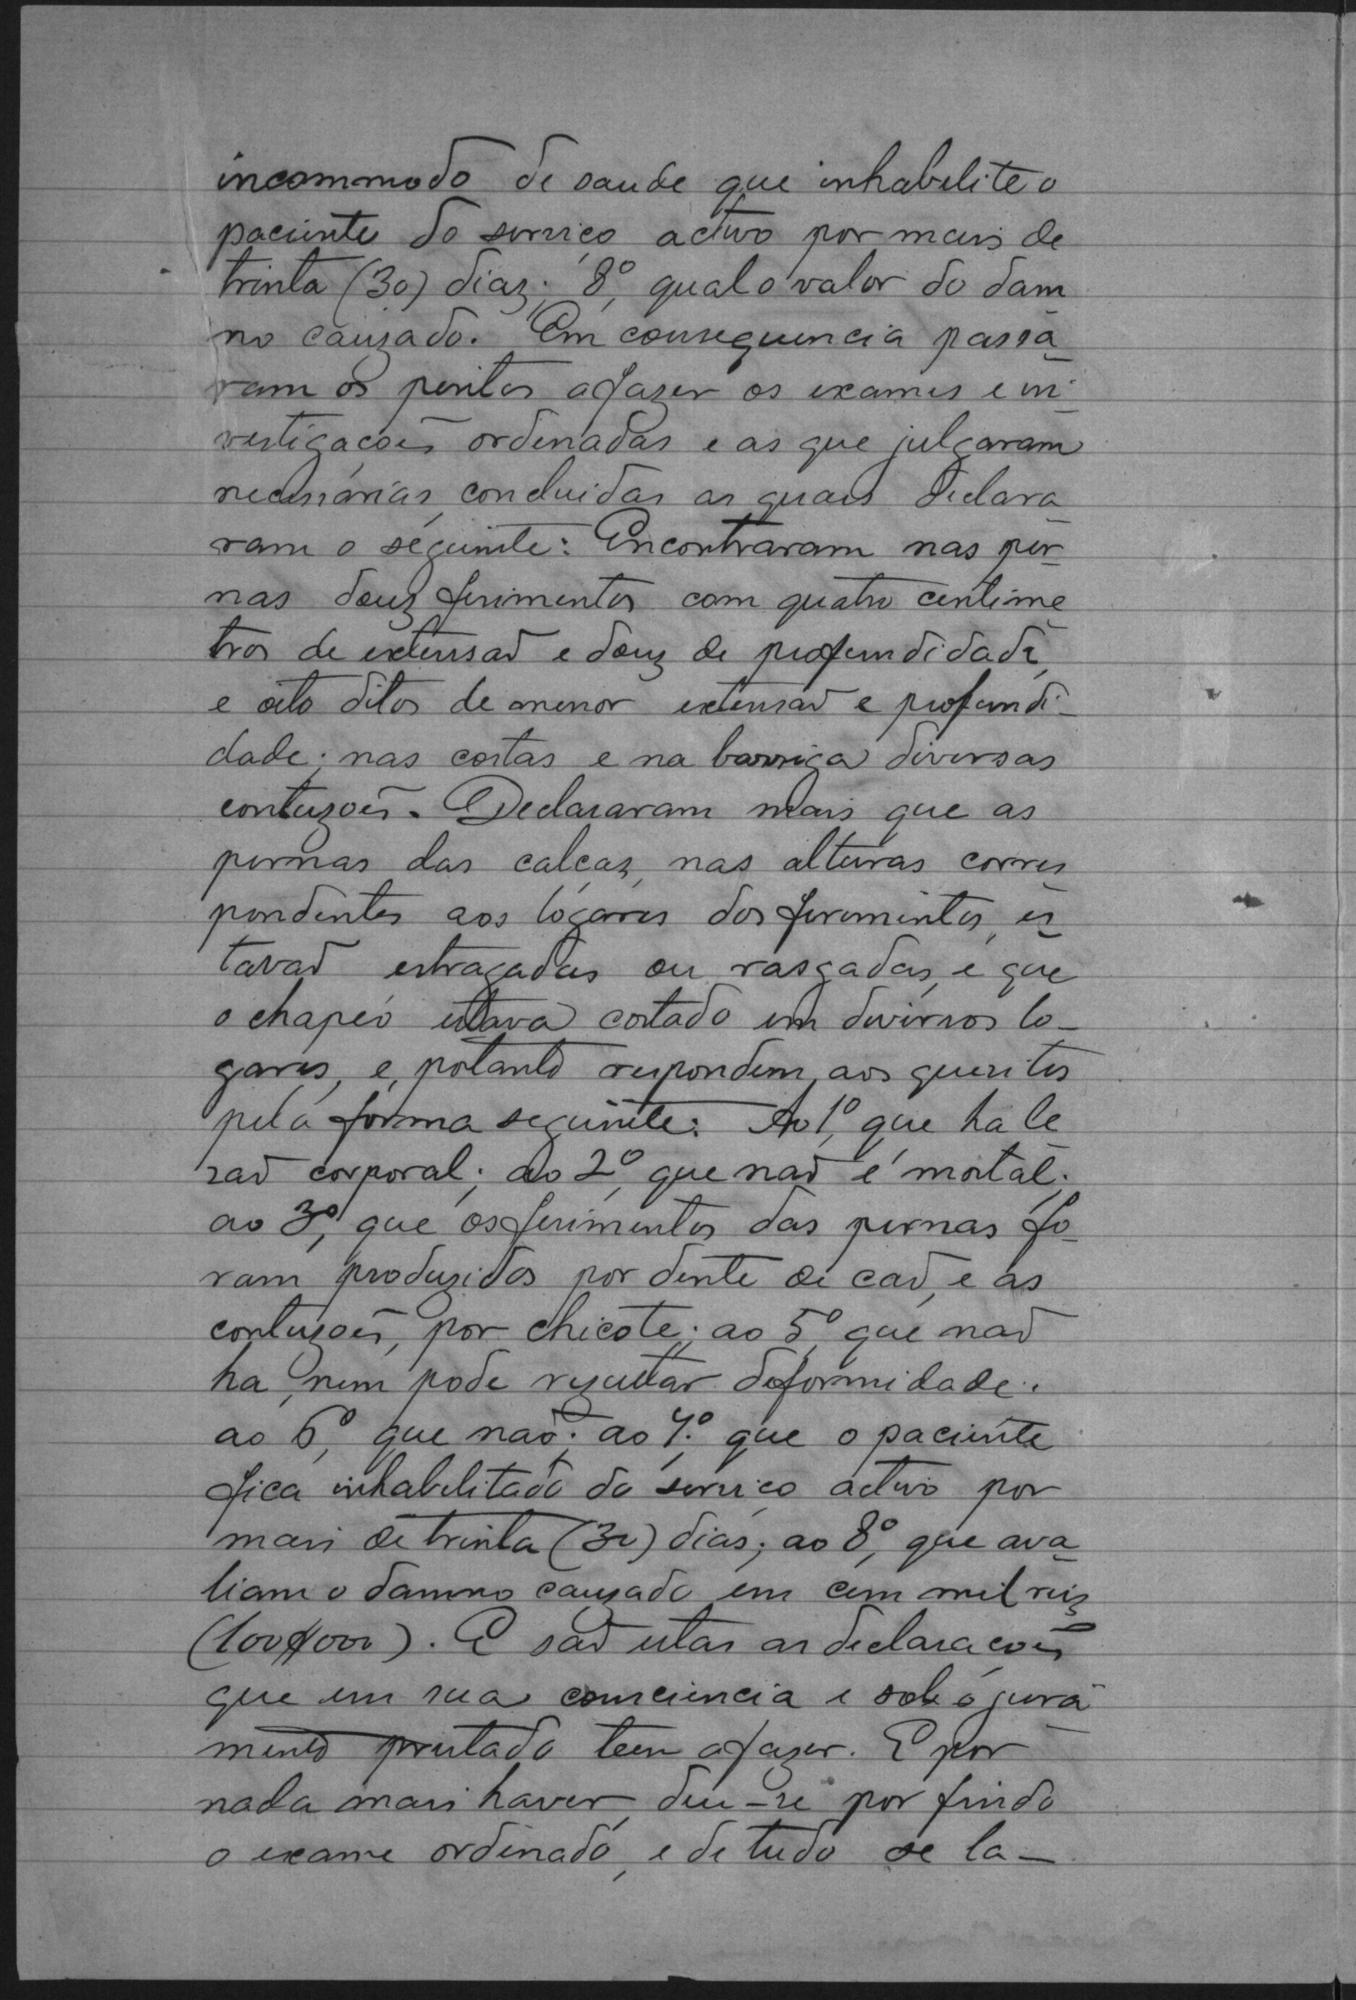 incommodo de saude que inhabilite o
paciente do serviço activo por mais de
trinta (30) diaz; 8º, qual o valor do dam
no cauzado. Em consequencia passa
ram os peritos a fazer os exames e in
vestigacoẽs ordenadas e as que julgaram
necessarias, concluidas as quaes declara
ram o seguinte: Encontraram nas per
nas douz ferimentos com quatro centime
tros de extensaõ e douz de profundidade,
e oito ditos de menor extensaõ e profundi-
dade; nas costas e na barriga diversas
contuzoẽs. Declararam mais que as
pernas das calças, nas alturas corres
pondentes aos logares dos ferimentos, es
tavaõ estragadas ou rasgadas, e que
o chapeó estava cortado em diversos lo-
gares, e, potanto respondem, aos quesitos
pela forma seguinte: Ao 1º, que ha le
zaõ corporal; ao 2º, que naõ é mortal;
ao 3º, que os ferimentos das pernas fo-
ram produzidos por dente de caõ, e as
contuzoẽs, por chicote; ao 5º, que naõ
ha, nem pode rezultar deformidade;
ao 6º, que naõ; ao 7º. que o paciente
fica inhabilitado do serviço activo por
mais de trinta (30) dias; ao 8º, que ava
liam o damno cauzado em cem mil reiz
(100$000). E saõ estas as declaracoẽs
que em sua consciencia e sob o jura
mento prestado teem a fazer. E por
nada mais haver, deu-se por findo
o exame ordenado, e de tudo se la-